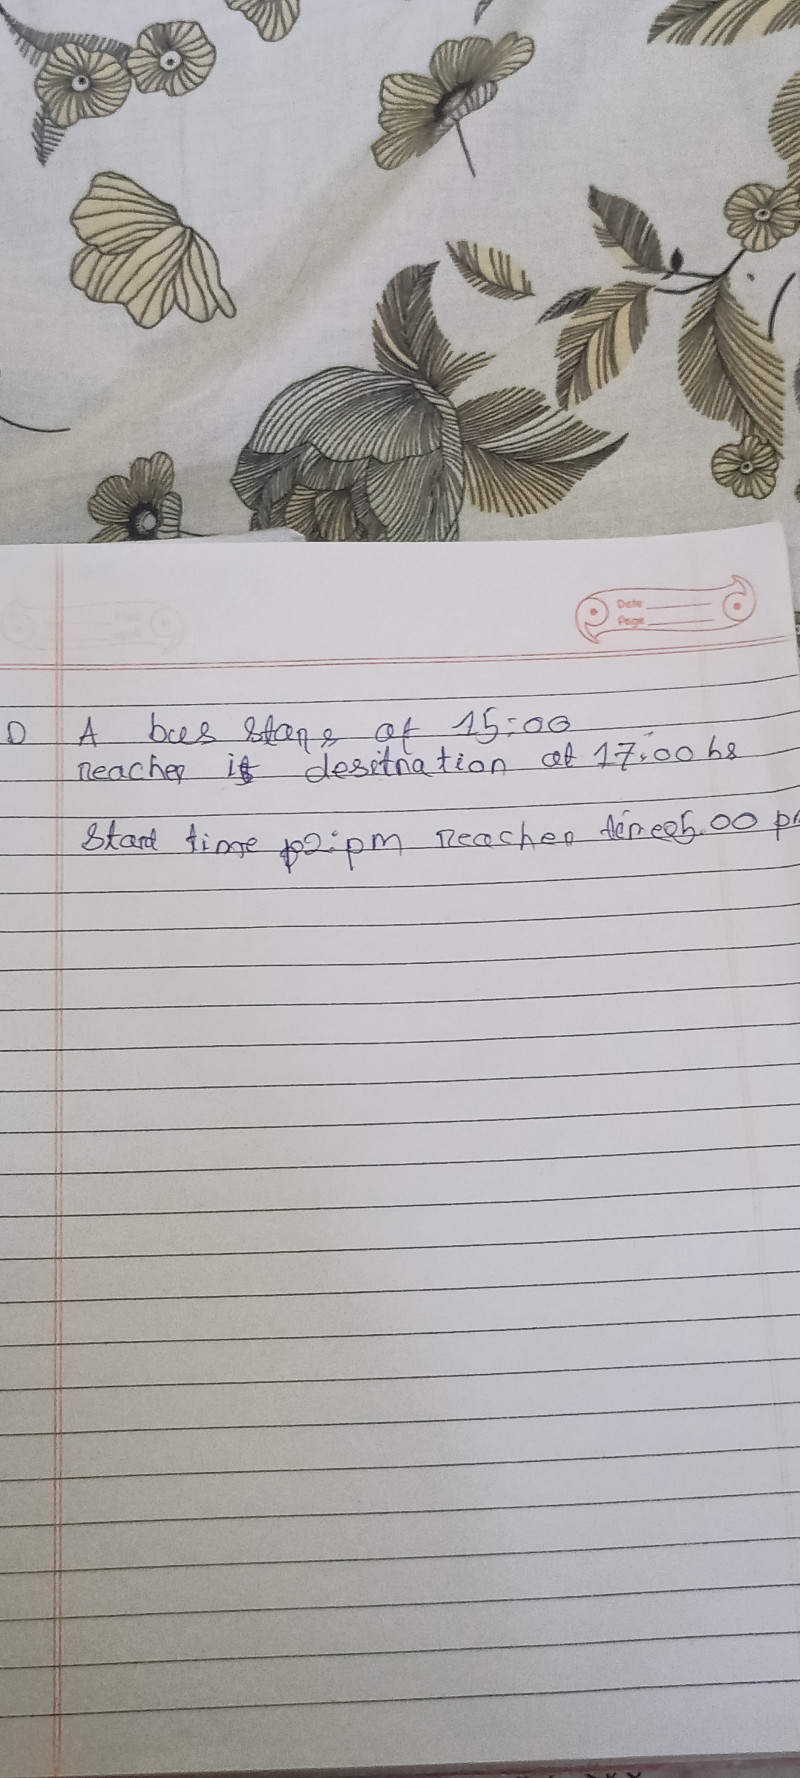 Date
Page
D A bus stans at 15:00
reaches it desitnation at 17:00 hs
Start time p2:pm reaches time 5.00 p